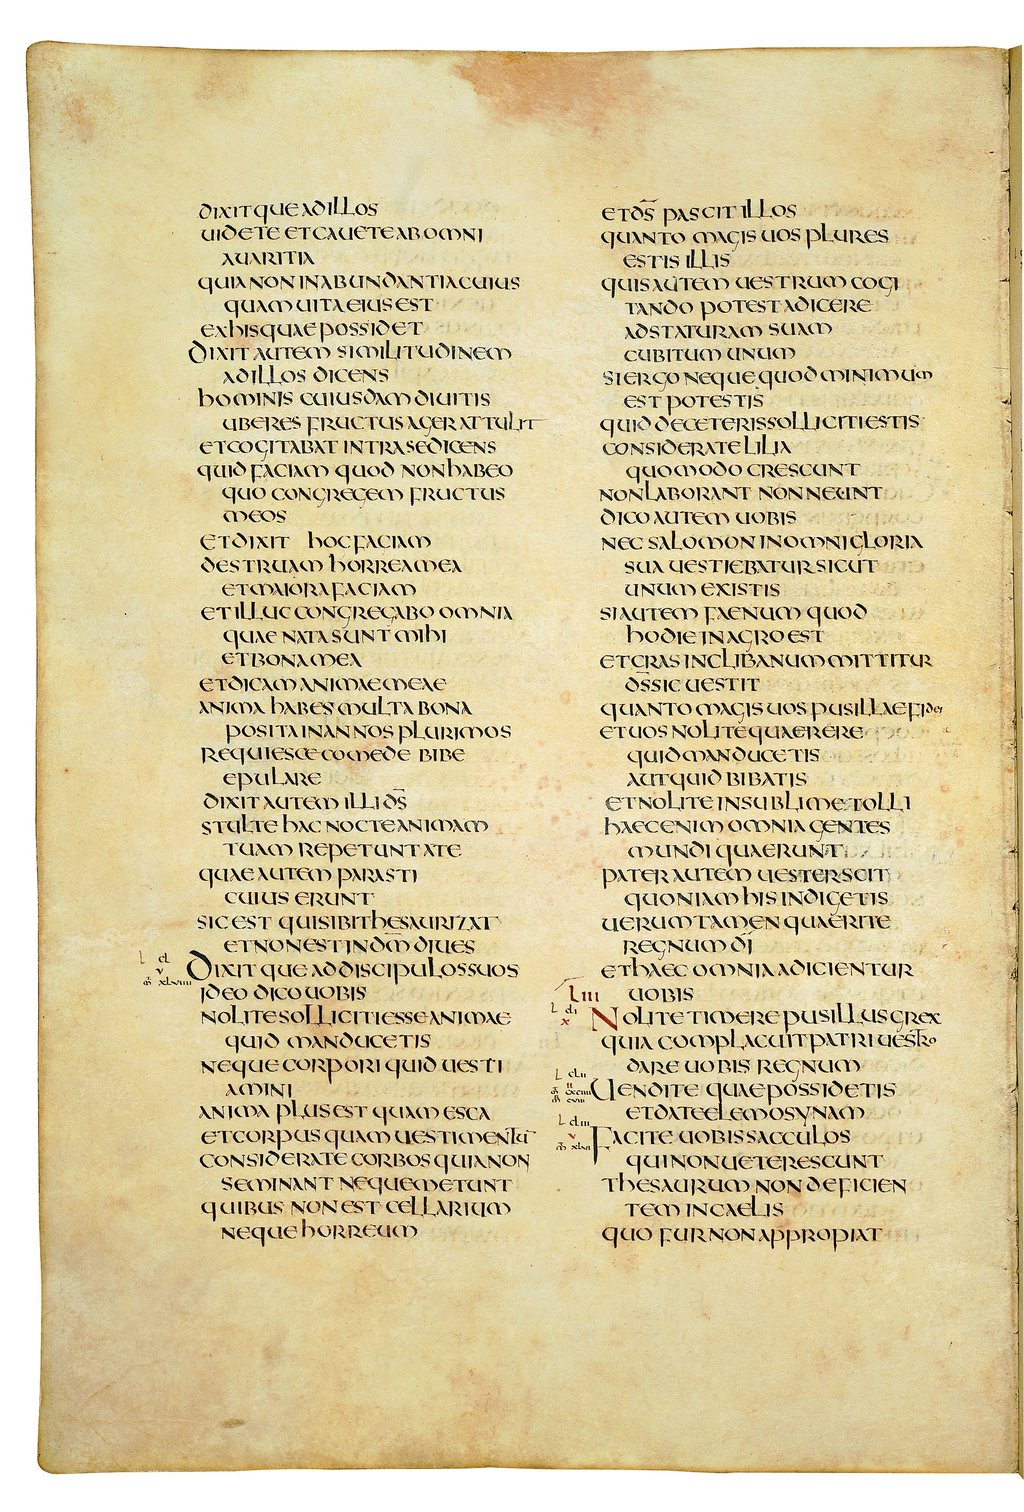 dixitque ad illos
uidete et cauete ab omni
auaritia
quia non in abundantia cuius
quam uita eius est
ex his quae possidet
Dixit autem similitudinem
ad illos dicens
hominis cuiusdam diuitis
uberes fructus ager attulit
et cogitabat intra se dicens
quid faciam quod non habeo
quo congregem fructus
meos
et dixit hoc faciam
destruam horrea mea
et maiora faciam
et illuc congregabo omnia
quae nata sunt mihi
et bona mea
et dicam animae meae
anima habes multa bona
posita in annos plurimos
requiesce comede bibe
epulare
dixit autem illi d̅s̅
stulte hac nocte animam
tuam repetunt a te
quae autem parasti
cuius erunt
sic est qui sibi thesaurizat
et non est in d̅m̅ diues
L cl
v
m xlviiii
Dixitque ad discipulos suos
ideo dico uobis
nolite solliciti esse animae
quid manducetis
neque corpori quid uesti
amini
anima plus est quam esca
et corpus quam uestimentū
considerate corbos quia non
seminant neque metunt
quibus non est cellarium
neque horreum
et d̅s̅ pascit illos
quanto magis uos plures
estis illis
quis autem uestrum cogi
tando potest adicere
ad staturam suam
cubitum unum
si ergo neque quod minimum
est potestis
quid de ceteris solliciti estis
considerate lilia
quomodo crescunt
non laborant non neunt
dico autem uobis
nec salomon in omni gloria
sua uestiebatur sicut
unum ex istis
si autem faenum quod
hodie in agro est
et cras in clibanum mittitur
d̅s̅ sic uestit
quanto magis uos pusillae fidei
et uos nolite quaerere
quid manducetis
aut quid bibatis
et nolite in sublime tolli
haec enim omnia gentes
mundi quaerunt
pater autem uester scit
quoniam his indigetis
uerumtamen quaerite
regnum d̅i̅
et haec omnia adicientur
uobis
Liii
L cli
x
Nolite timere pusillus grex
quia complacuit patri uestro
dare uobis regnum
L clii
ii
Uendite quae possidetis
et date elemosynam
L cliii
v
Facite uobis sacculos
qui non ueterescunt
thesaurum non deficien
tem in caelis
quo fur non appropiat